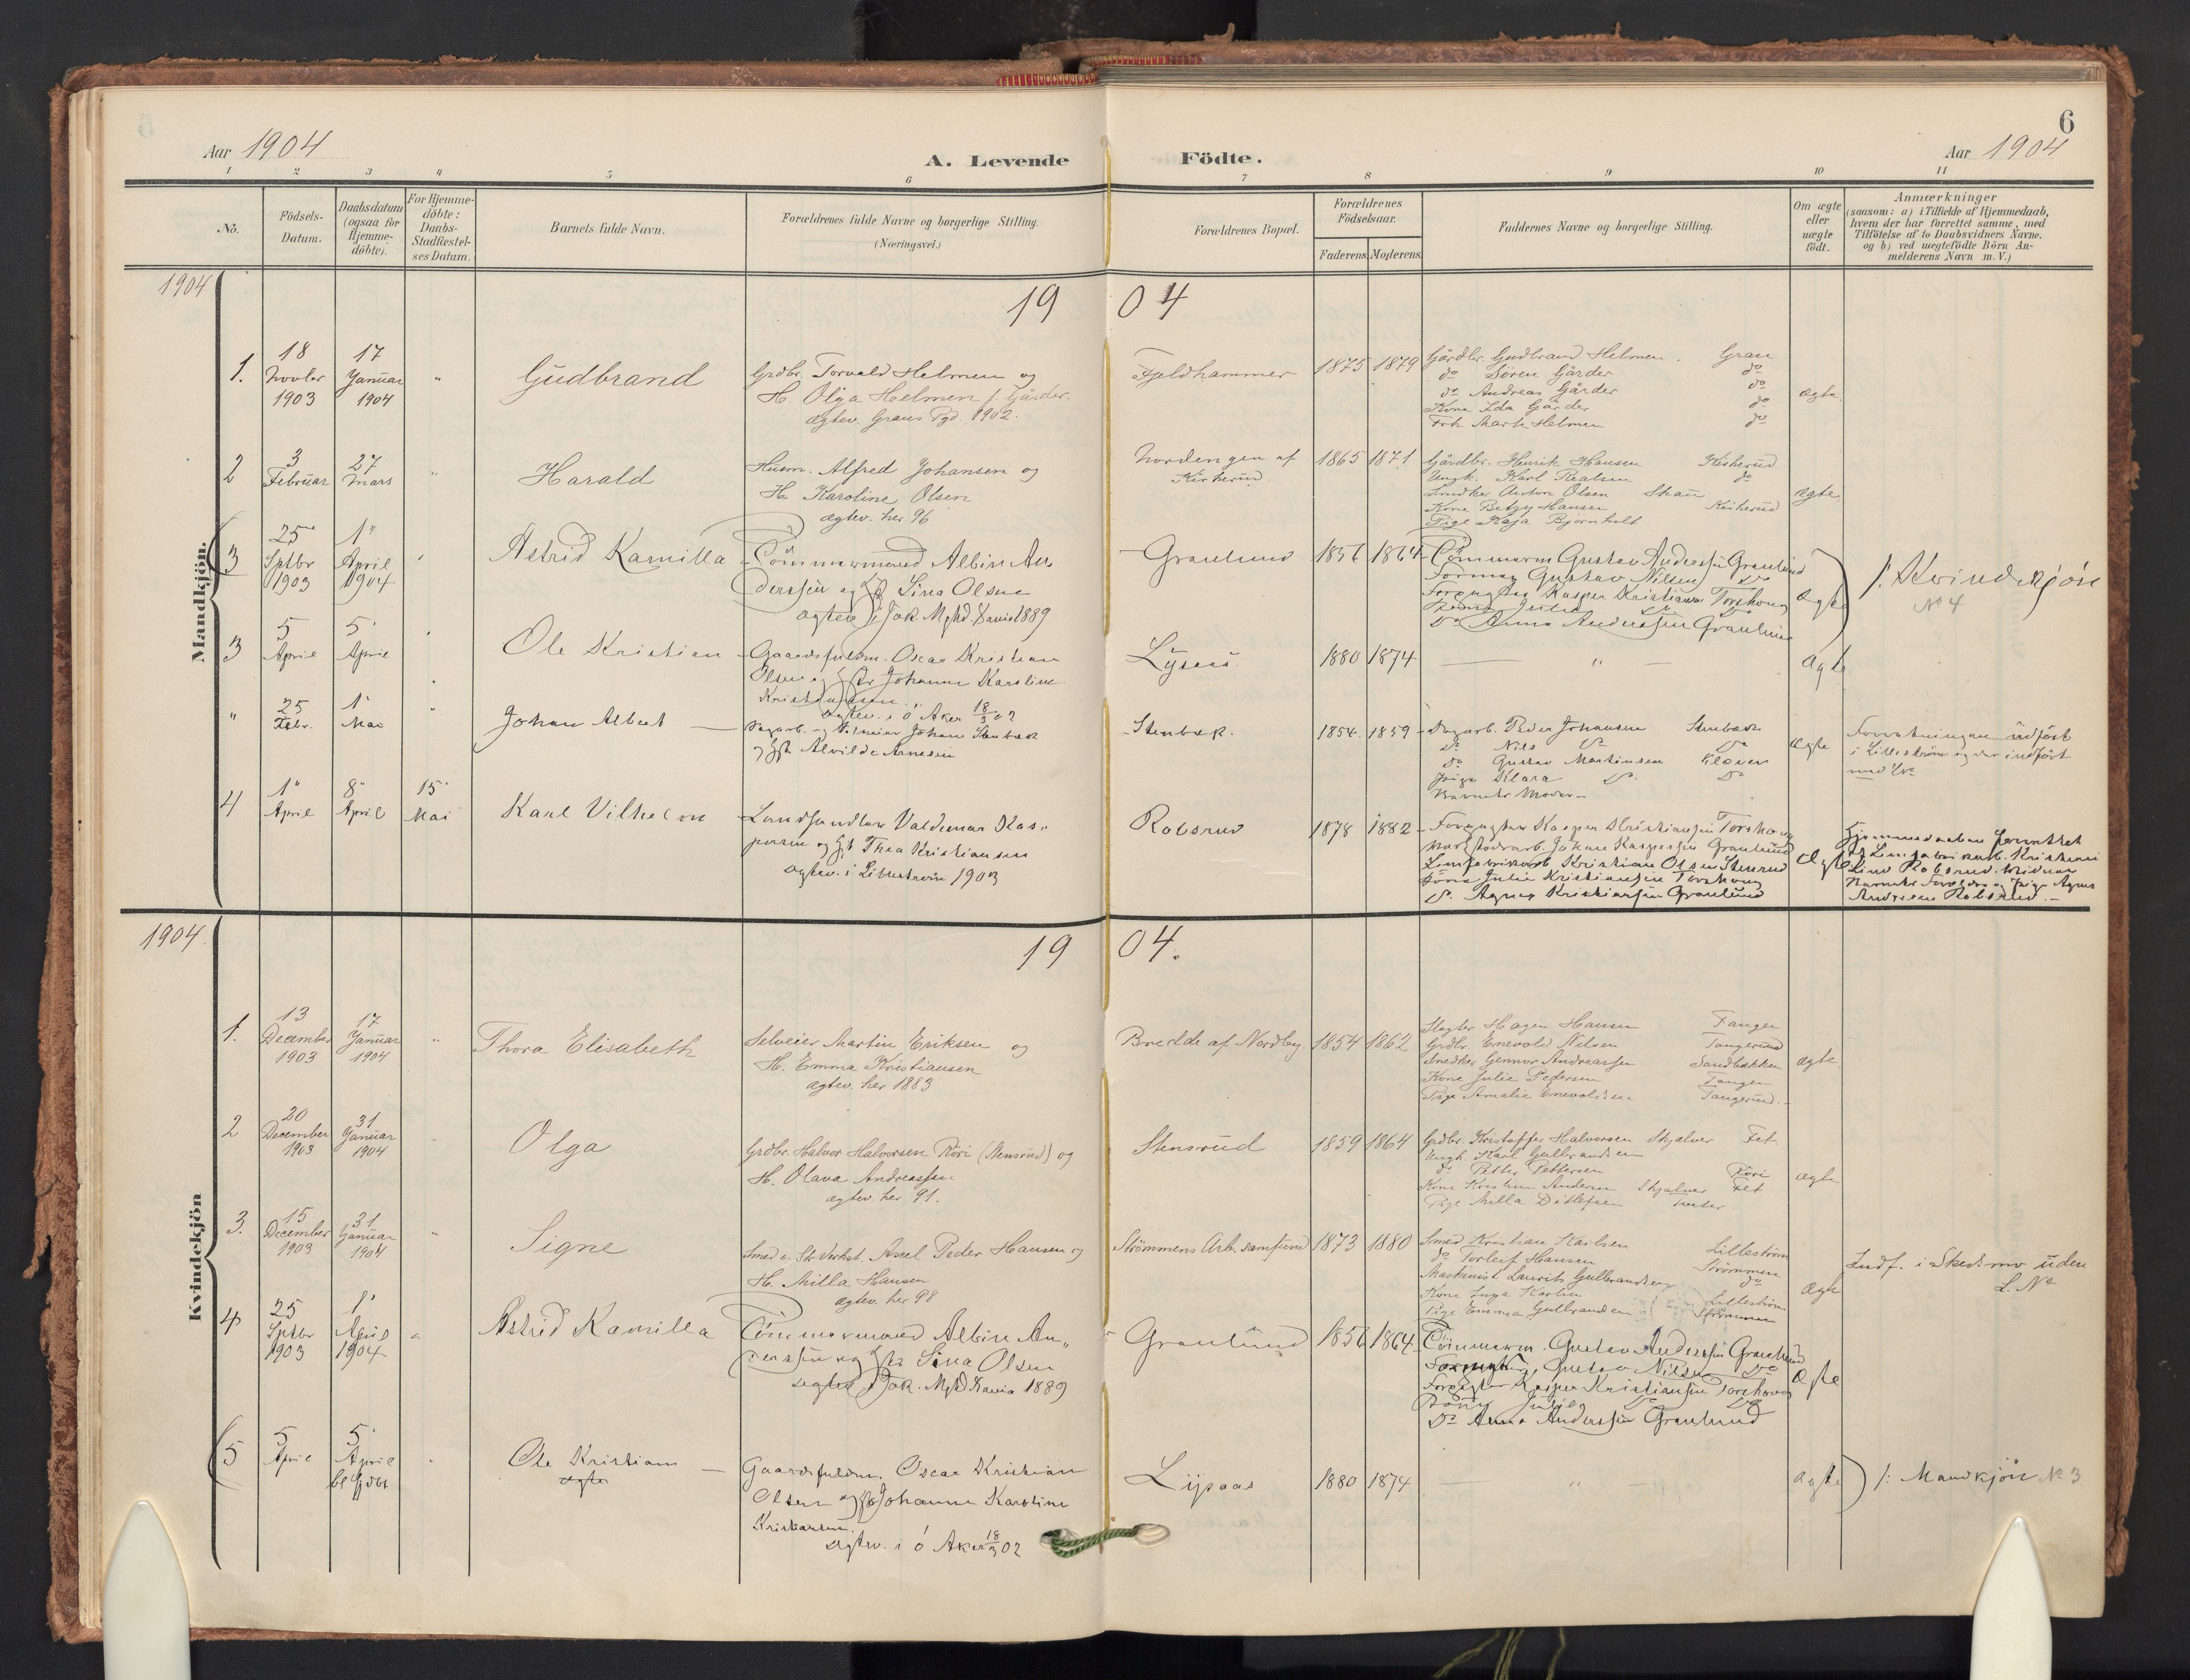 6
Aar 1904
A. Levende Födte.
Aar 1904
1 2 3 4 5 6 7 8 9 10 11
No.
Födsels-
Datum.
Daabsdatum
(ogsaa for
Hjemme-
döbte).
For Hjemme-
döbte:
Daabs-
Stadfæstel-
ses Datum.
Barnets fulde Navn.
Forældrenes fulde Navne og borgerlige Stilling.
(Næringsvei.)
Forældrenes Bopæl.
Forældrenes
Födselsaar.
Faderens. Moderens.
Faddernes Navne og borgerlige Stilling.
Om ægte
eller
uægte
födt.
Anmærkninger
(saasom: a) i Tilfælde af Hjemmedaab,
hvem der har forrettet samme, med
Tilföielse af to Daabsvidners Navne.
og b) ved uægtefödte Börn An-
melderens Navn m. V.)
Mandkjön.
1904
19 04
1.
18
Novbr
1903
17
Januar
1904
"
Gudbrand
Grdbr. Torvald Helmen og
H. Olga Helmen f. Gårder.
ægtev. Grans Pgd. 1902.
Fjeldhammer
1875 1879
Gårdbr. Gudbrand Helmen. Gran
do Sören Gårder do
do Andreas Gårder do
Kone Ida Gårder do
Frk. Marte Helmen do
ægte
2
3
Februar
27
Mars
"
Harald
Husm. Alfred Johansen og
H. Karoline Olsen
ægtev. her 96
Nordengen af
Kirkerud.
1865 1871
Gårdbr. Henrik Hansen Kirkerud
Ungk. Karl Realsen do
Snedker Anton Olsen
Kone Betzy Hansen Kirkerud
Pige Kaja Bjørnholt
ægte
3
25
Sptbr
1903
1"
April
1904
Astrid Kamilla
Tömmermand Albin An
derssen og H Lina Olsen
ægtev i Jak. Mghd. Xania 1889
Granlund
1856 1864
Tömmerm Gustav Anderssen Granlund
Gustav Nilsen Do
Forpagter Kasper Kristiansen Torshoug
Kone Julie Do Do
Do Anna Anderssen Granlund
Ægte
/: Kvindekjön
No 4
3
5
April
5"
April
Ole Kristian
Gaardsfuldm. Oscar Kristian
Olsen og Hst Johanne Karoline
Kristiansen
ægtev. i Ö Aker 18/3 02
1880 1874
"
ægte
"
25
Febr.
1"
Mai
"
Johan Albert
Dagarb. og Selveier Johan Stenbæk
og Hst Alvilde Arnesen
Stenbæk.
1854. 1859
Dagarb. Peder Johansen Stenbæk
Do Nils Do Do
Do Gustav Martinsen
Pige Klara Do Do
Barnets Moder
ægte
Forretningen udfört
i Lilleström og der indfört
med No
4
1"
April
8"
April
15"
Mai
Karl Vilhelm
Landhandler Valdemar Kas-
persen og Hst Thea Kristiansen
ægtev. i Lilleström 1903
Robsrud
1878 1882
Forpagter Kasper Kristiansen Torshoug
Johan Kaspersen Granlund
Limfabrikarb Kristian Olsen Stenrud
Kone Julie Kristiansen Torshoug
Do. Agnes Kristiansen Granlund
Ægte
Hjemmedaaben forrettet
af Limfabrikarb. Kristian
Lind Robsrud. Vidner
Barnets Forældre og Pige Agnes
Andersen Robsrud.
Kvindekjön
1904.
19 04.
1.
13
December
1903
17
Januar
1904
"
Thora Elisabeth
Selveier Martin Eriksen og
H. Emma Kristiansen
ægtev. her 1883
Bredde af Nordby
1854 1862
Slagter Hagen Hansen Tangen
Grdbr. Enevold Nilsen Tangerud
Snedker Gunnar Andreassen Sandbækken
Kone Julie Pedersen Tangen
Pige Amalie Enevoldsen Tangerud
ægte
2
20
December
1903
31
Januar
1904
Olga
Grdbr. Halvor Halvorsen Röri (Stensrud) og
H. Olava Andreassen
ægtev. her 91.
Stensrud
1859 1864
Grdbr. Kristoffer Halvorsen Skjalver Fet
Ungk. Karl Gulbrandsen
do Petter Pettersen Röri
Kone Kristine Andersen Skjalver Fet
Pige Milla Ditlefsen
ægte
3.
15
December
1903
31
Januar
1904
"
Signe
Smed v. Str. Verkst. Axel Peder Hansen og
H. Milla Hansen
ægtev. her 98
Strømmens Arb. samfund
1873 1880
Smed Kristian Karlsen Lilleström
do Torleif Hansen Strømmen
Maskinist Laurits Gulbrandsen do
Kone Inga Karlsen Lilleström
Pige Emma Gulbrandsen Strømmen
ægte
Indf. i Skedsmo uden
L. No
4
25
Sptbr
1903
1"
April
1904
Astrid Kamilla
Tömmermand Albin An-
derssen og Hst Lina Olsen
ægtev i Jak. Mghd. Xania 1889
Granlund
1856 1864
Tömmerm. Gustav Anderssen Granlund
Gustav Nilsen Do
Forpagter Kasper Kristiansen Torshoug
Kone Julie Do Do
Do Anna Anderssen Granlund
Ægte
5
5
April
5"
April
Ole Kristian
ægte
Gaardsfuldm. Oscar Kristian
Olsen og Hst Johanne Karoline
Kristiansen.
ægtev. i Ö Aker 18/3 02
1880 1874
"
ægte
/: Mandkjön No 3